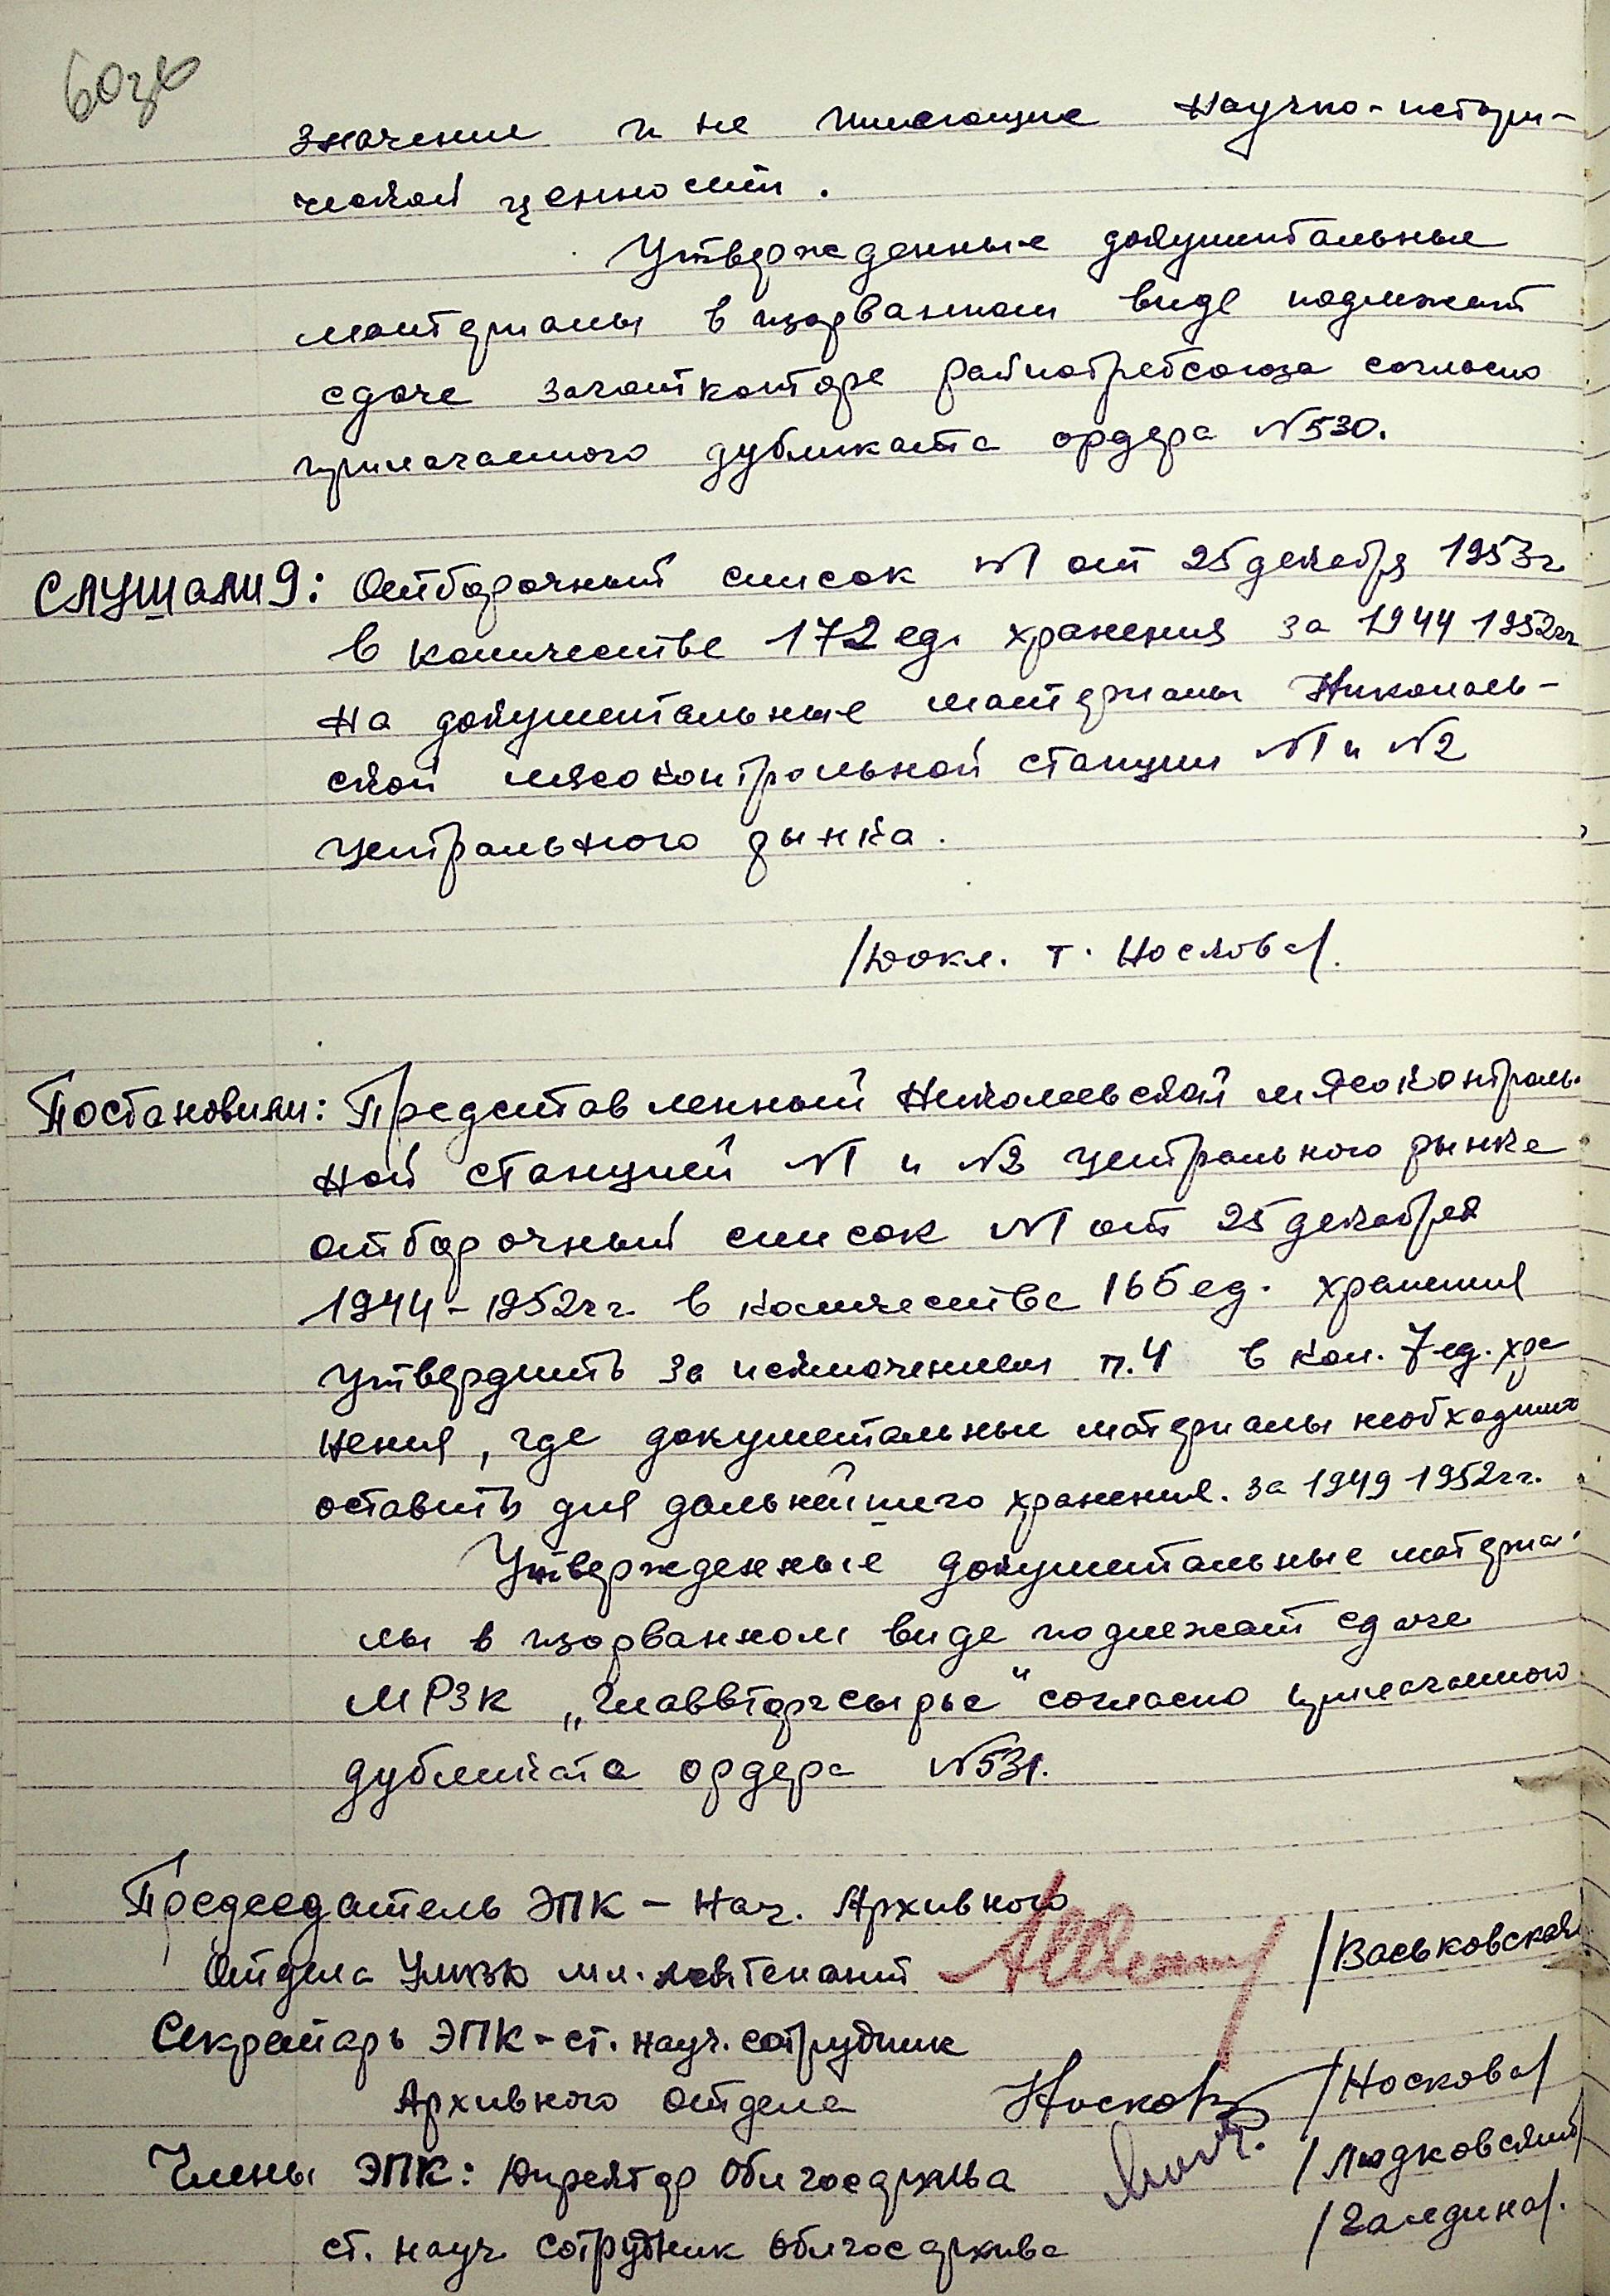 60зв
значение и не имеющие научно-истори-
ческой ценности.
Утвержденные документальные
материалы в изорванном виде подлежат
сдаче заготконторе райпотребсоюза согласно
прилагаемого дубликата ордера №530.
СЛУШАЛИ 9: Отборочный список №1 от 25 декабря 1953г
в количестве 172 ед. хранения за 1944 1952гг
на документальные материалы Николаев-
ской мясоконтрольной станции №1 и №2
центрального рынка.
/Докл. т. Носкова/.
Постановили: Представленный Николаевской мясоконтроль-
ной станцией №1 и №2 центрального рынка
отборочный список №1 от 25 декабря
1944-1952гг. в количестве 165 ед. хранения
утвердить за исключением п.4 в кол. 7 ед. хра
нения, где документальные материалы необходимо
оставить для дальнейшего хранения. за 1949 1952гг.
Утвержденные документальные материа-
лы в изорванном виде подлежат сдаче
МРЗК „Главвторчсырье" согласно прилагаемого
дубликата ордера №531.
Председатель ЭПК - Нач. Архивного
Отдела УМВД мл. лейтенант /Васьковская/
Секретарь ЭПК - ст. науч. сотрудник
Архивного отдела Носкова /Носкова/
Члены ЭПК: Директор Облгосархива /Людковский/
ст. науч. сотрудник облгосархива /Галедина/.